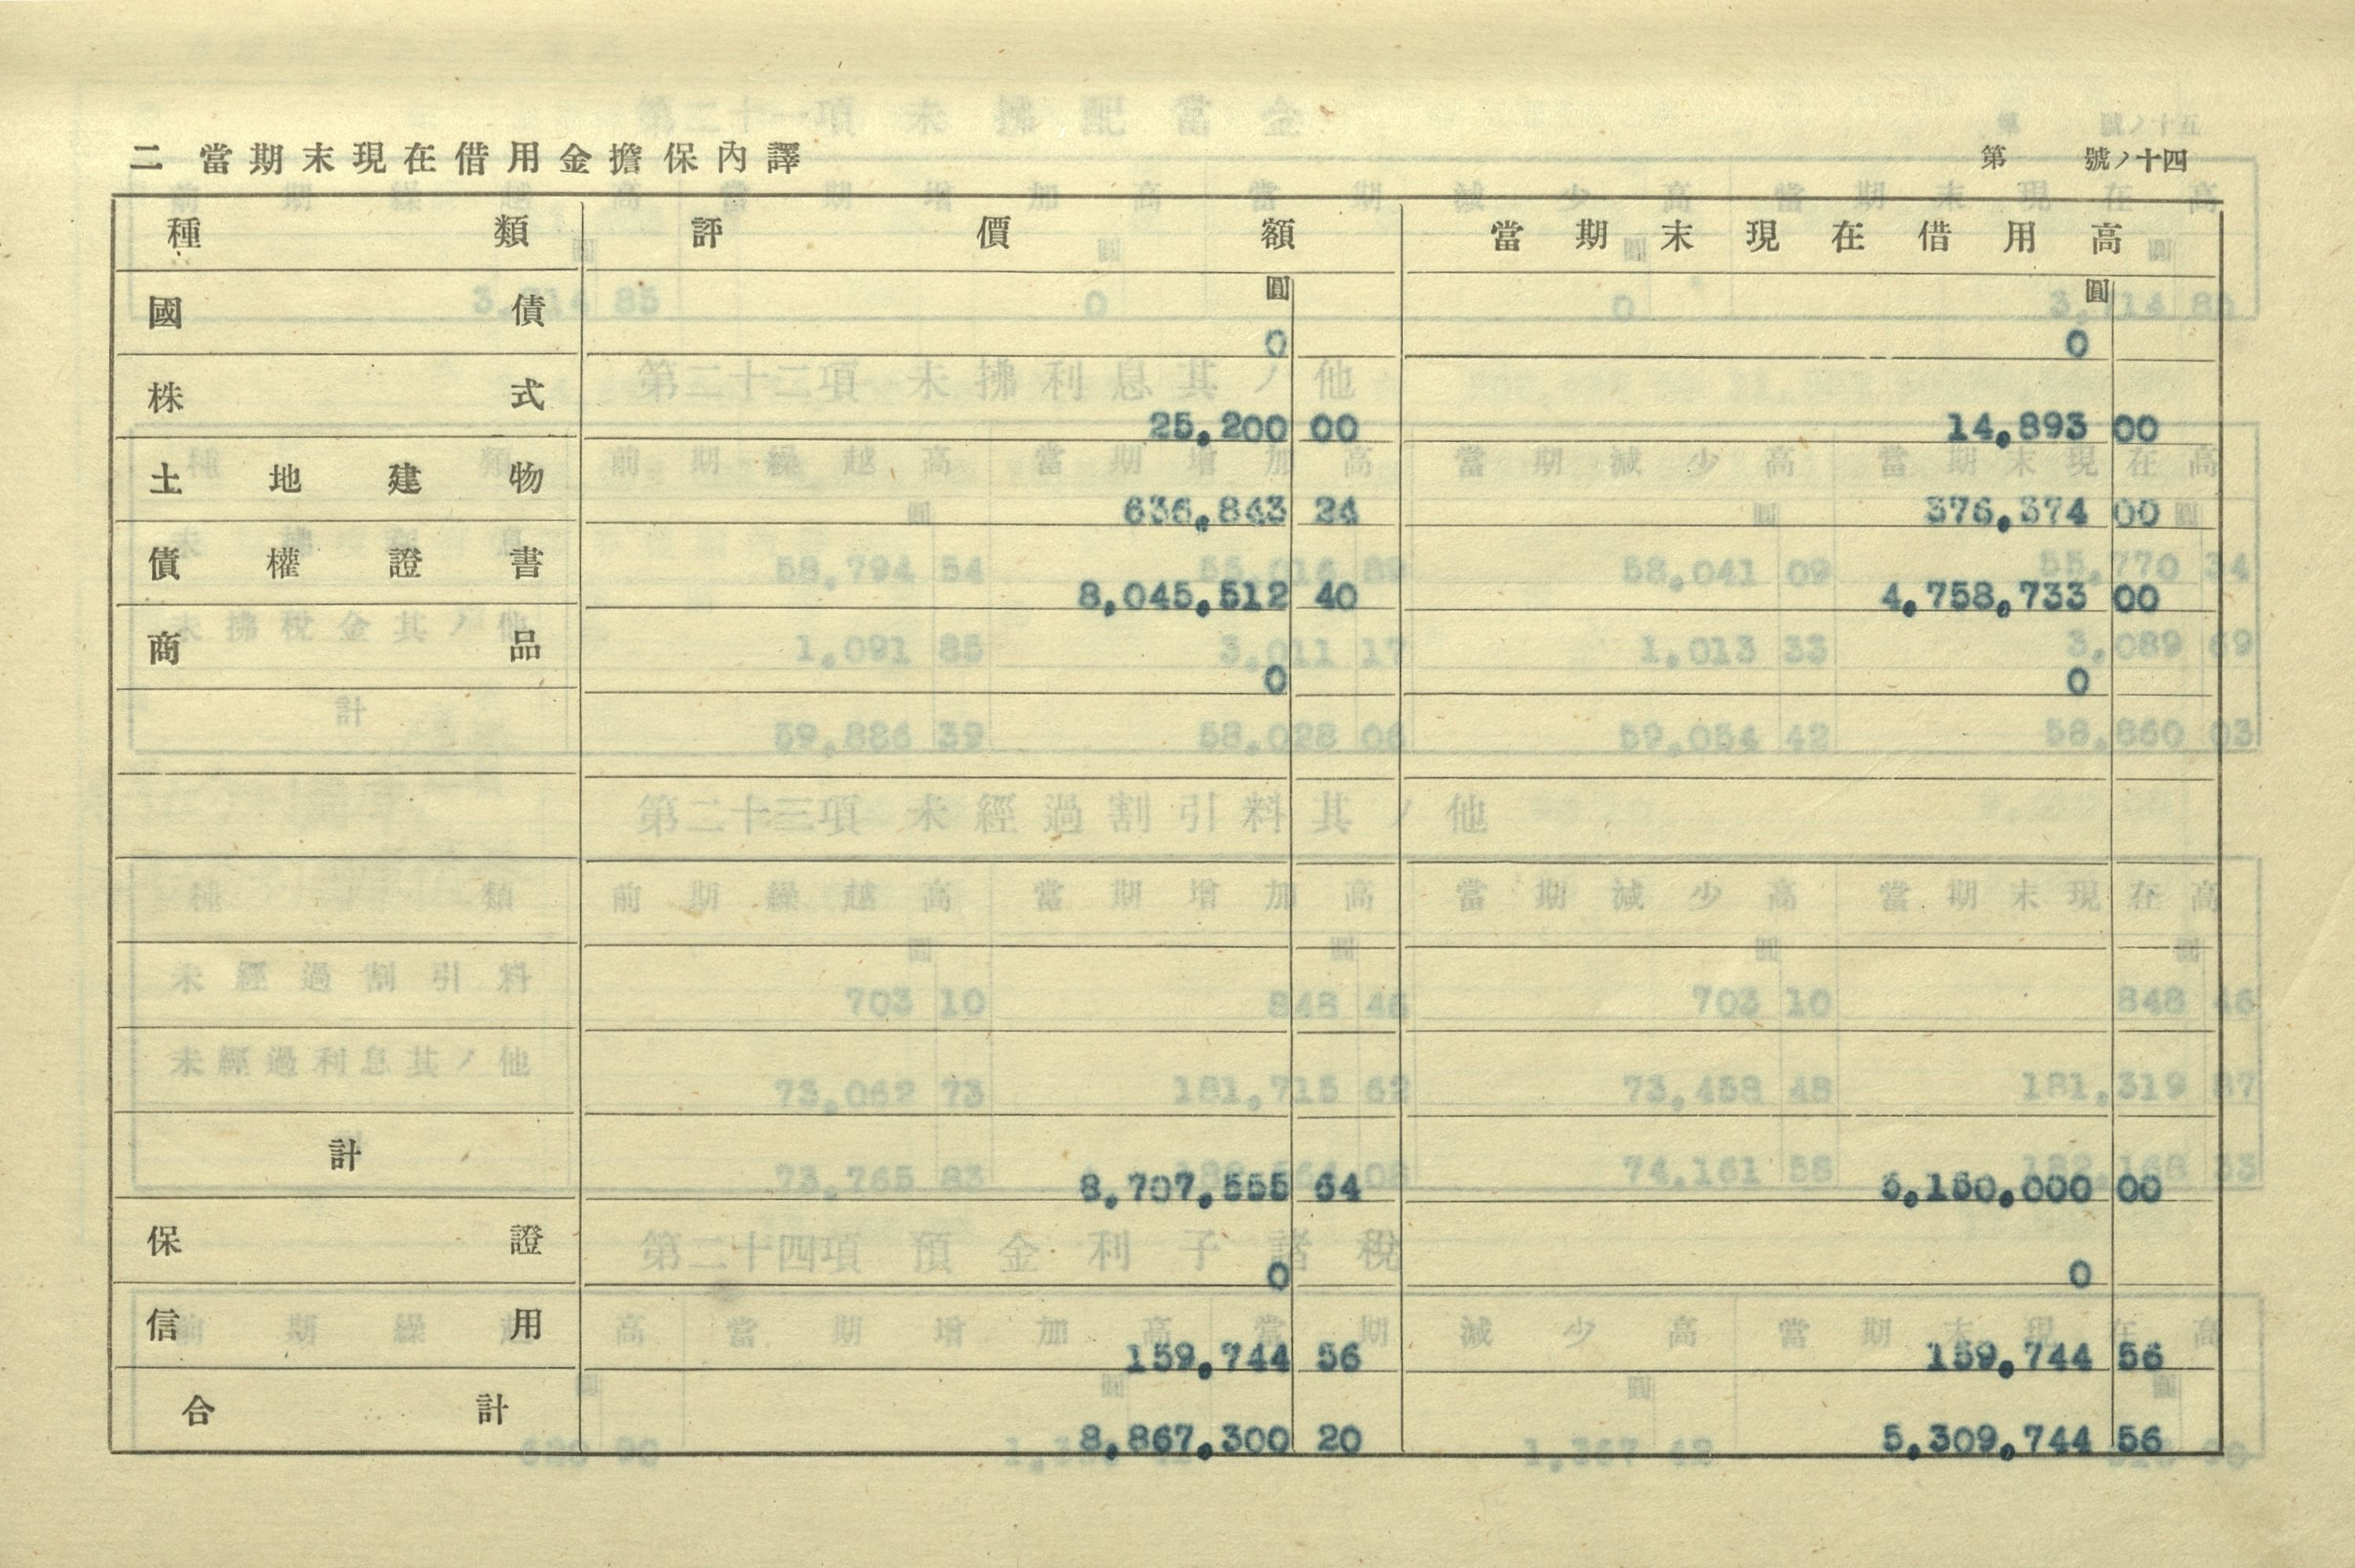 二 當期末現在借用金擔保內譯
第 號ノ十四
種類 評價額 當期末現在借用高
國債 圓 0 圓 0
株式 25,200 00 14,893 00
土地建物 636,843 24 376,374 00
債權證書 8,045,512 40 4,758,733 00
商品 0 0
計 8,707,555 64 5,150,000 00
保證 0 0
信用 159,744 56 159,744 56
合計 8,867,300 20 5,309,744 56